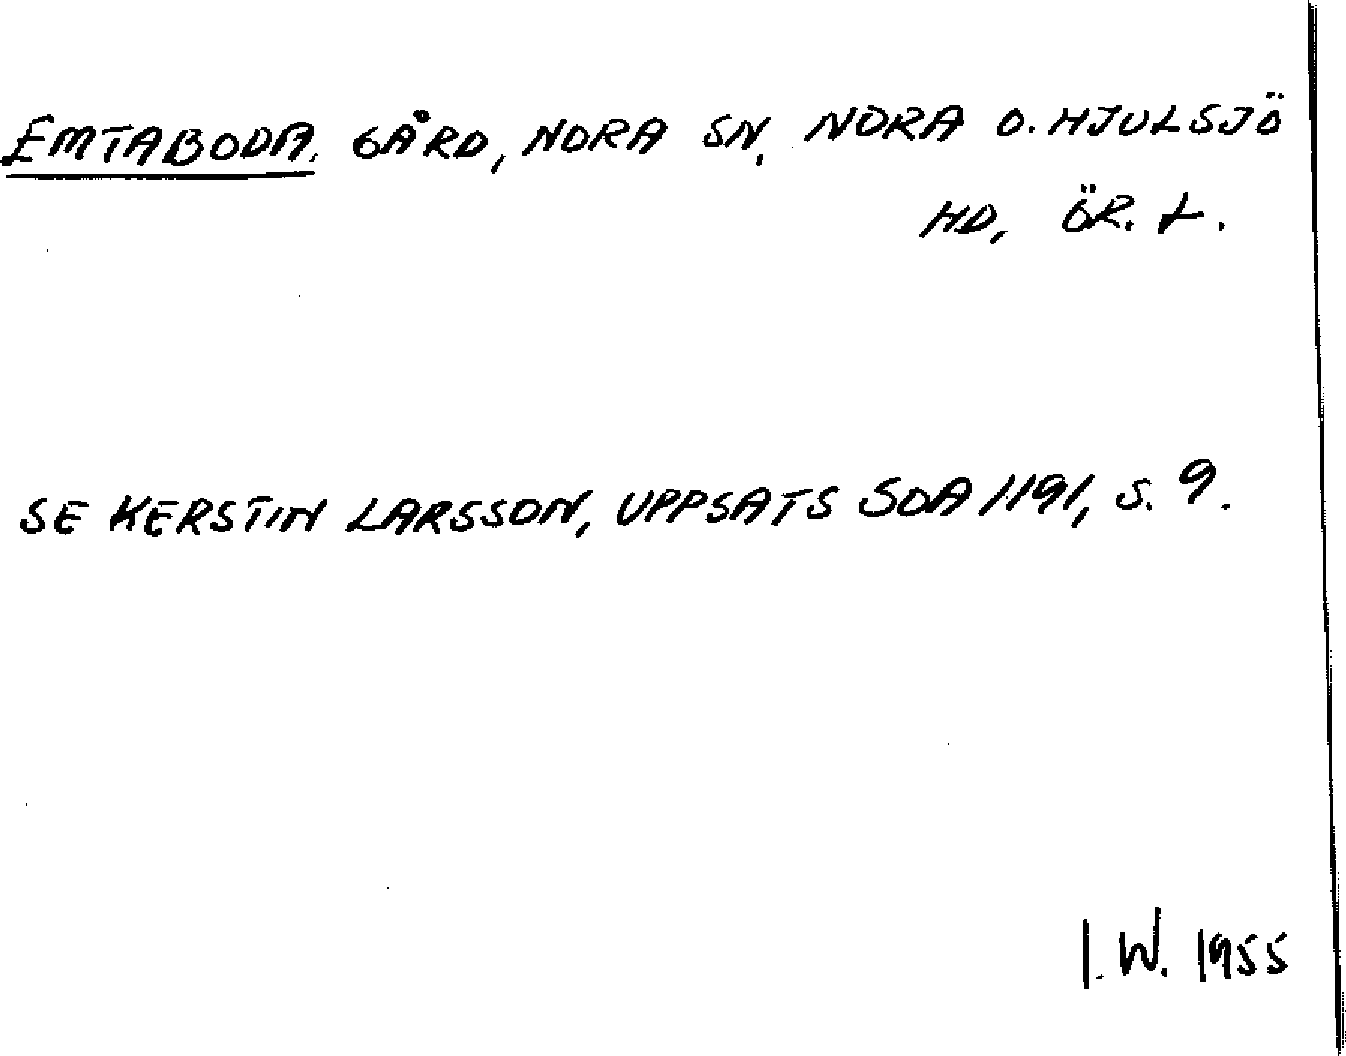 EMTABODA. GÅRD, NORA SN, NORA O. HJULSJÖ
HD, ÖR. L.
SE KERSTIN LARSSON, UPPSATS SOA 1191, S. 9.
I. W. 1955